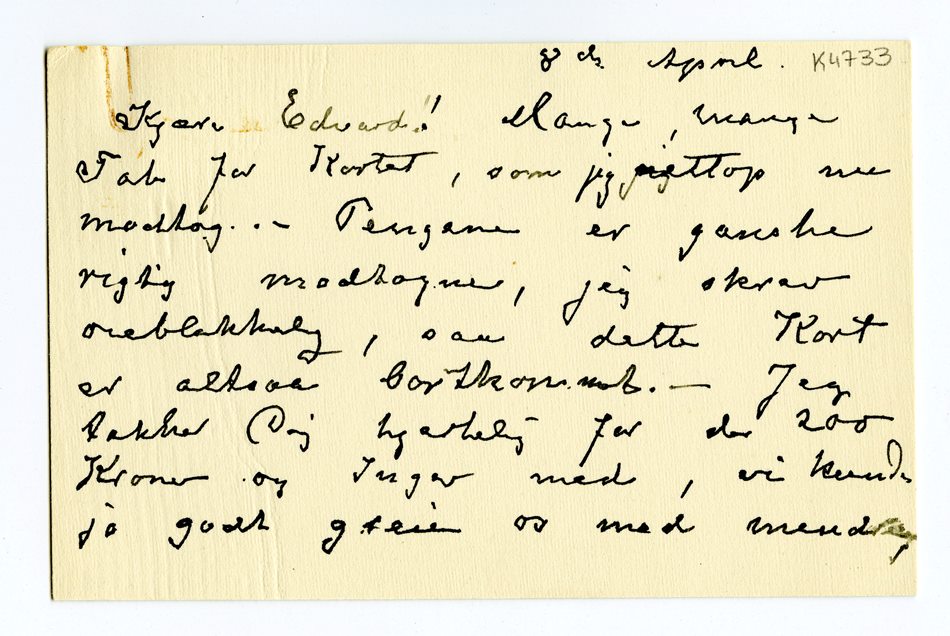 8 de April. K4733
Kjære Edvard! Mange, mange
Tak for Kortet, som jeg jettop nu
modtog. . – Pengane er ganske
rigtig modtogne, jeg skrev
oieblikkelig, saa dette Kort
er altsaa bortkommet. – Jeg
takker Dig hjertelig for de 200
Kroner og Inger med, vi kunde
jo godt greie os med mindre,